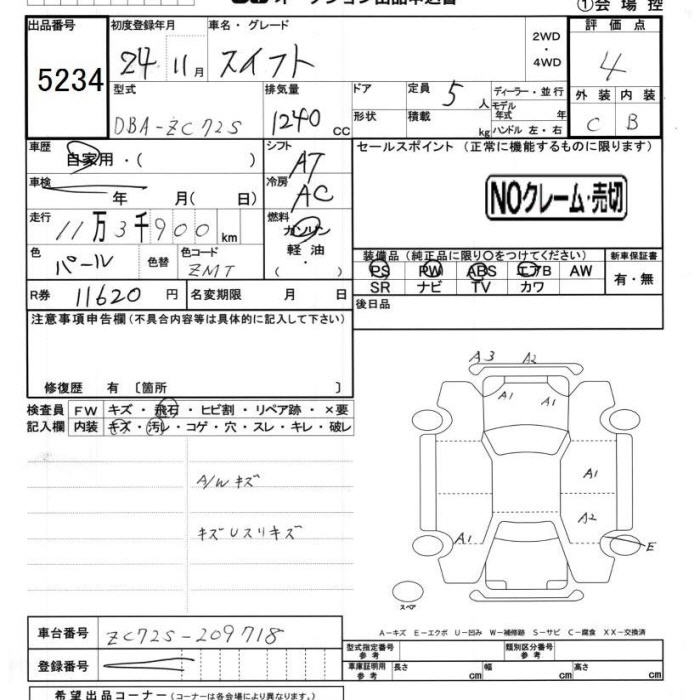 ①会場控
出品番号 5234
初度登録年月 24 11月
車名・グレード スイフト
2WD・4WD
評価点 4
型式 DBA-ZC72S
排気量 1240 cc
ドア形状
定員 5人
積載 kg
ディーラー・並行
モデル年式 年式
ハンドル 左・右
外装 C
内装 B
車歴 自家用・( )
シフト AT
セールスポイント (正常に機能するものに限ります)
車検 年 月( 日)
冷房 AC
NOクレーム・売切
走行 11万3千900 km
燃料 ガソリン 軽油・( )
色 パール 色替
色コード ZMT
装備品(純正品に限り○をつけてください)
新車保証書
PS PW ABS エアB AW
有・無
SR ナビ TV カワ
R券 11620円
名変期限 月 日
後日品
注意事項申告欄(不具合内容等は具体的に記入して下さい)
修復歴 有 〔箇所 〕
検査員 FW キズ・飛石・ヒビ割・リペア跡・×要
記入欄 内装 キズ・汚レ・コゲ・穴・スレ・キレ・破レ
A3 A2
A1 A1
A/W キズ
A1
キズUスリキズ
A2
A1
E
スペア
A-キズ E-エクボ U-凹み W-補修跡 S-サビ C-腐食 XX-交換済
車台番号 ZC72S-209718
型式指定番号
類別区分番号
登録番号
車庫証明用参考 長さ cm 幅 cm 高さ cm
希望出品コーナー(コーナーは各会場により異なります。)
参考 参考